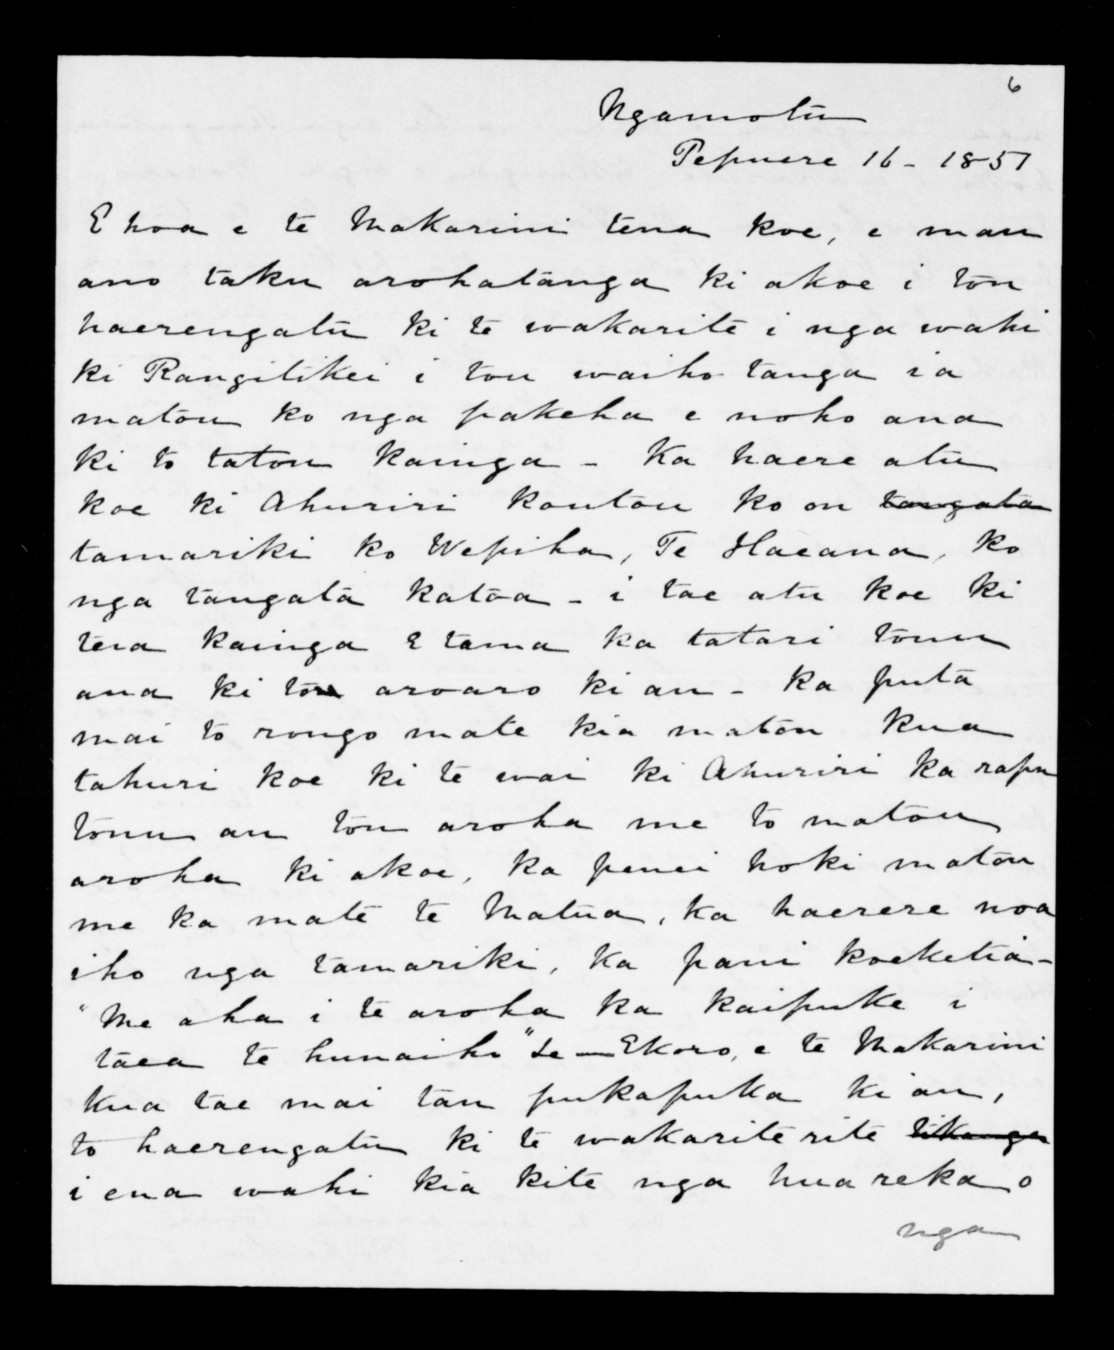 6
Ngamotu
Pepuere 16 - 1851
E hoa e te Makarini tena koe, e mau
ano taku arohatanga ki a koe i ton
haerengatu ki te wakarite i nga wahi
ki Rangitikei i tou waiho tanga ia
matou ko nga pakeha e noho ana
ki to tatou kainga - Ka haere atu
koe ki Ahuriri koutou ko ou tangata
tamariki ko Wepiha, Te Haeana, ko
nga tangata katoa - i tae atu koe ki
tera kainga E tama ka tatari tonu
ana ki tou aroaro ki au - ka puta
mai to rongo mate kia matou kua
tahuri koe ki te wai ki Ahuriri ka rapu
tonu au tou aroha me to matou
aroha ki akoe, ka penei hoki matou
me ka mate te Matua, ka haerere noa
iho nga tamariki, ka pani koeketia -
"Me aha i te aroha ka kaipuke i
taea te hunaiho" - E koro, e te Makarini
kua tae mai tau pukapuka ki au,
to haerengatu ki te wakariterite tikanga
i ena wahi kia kite nga hua reka o
nga